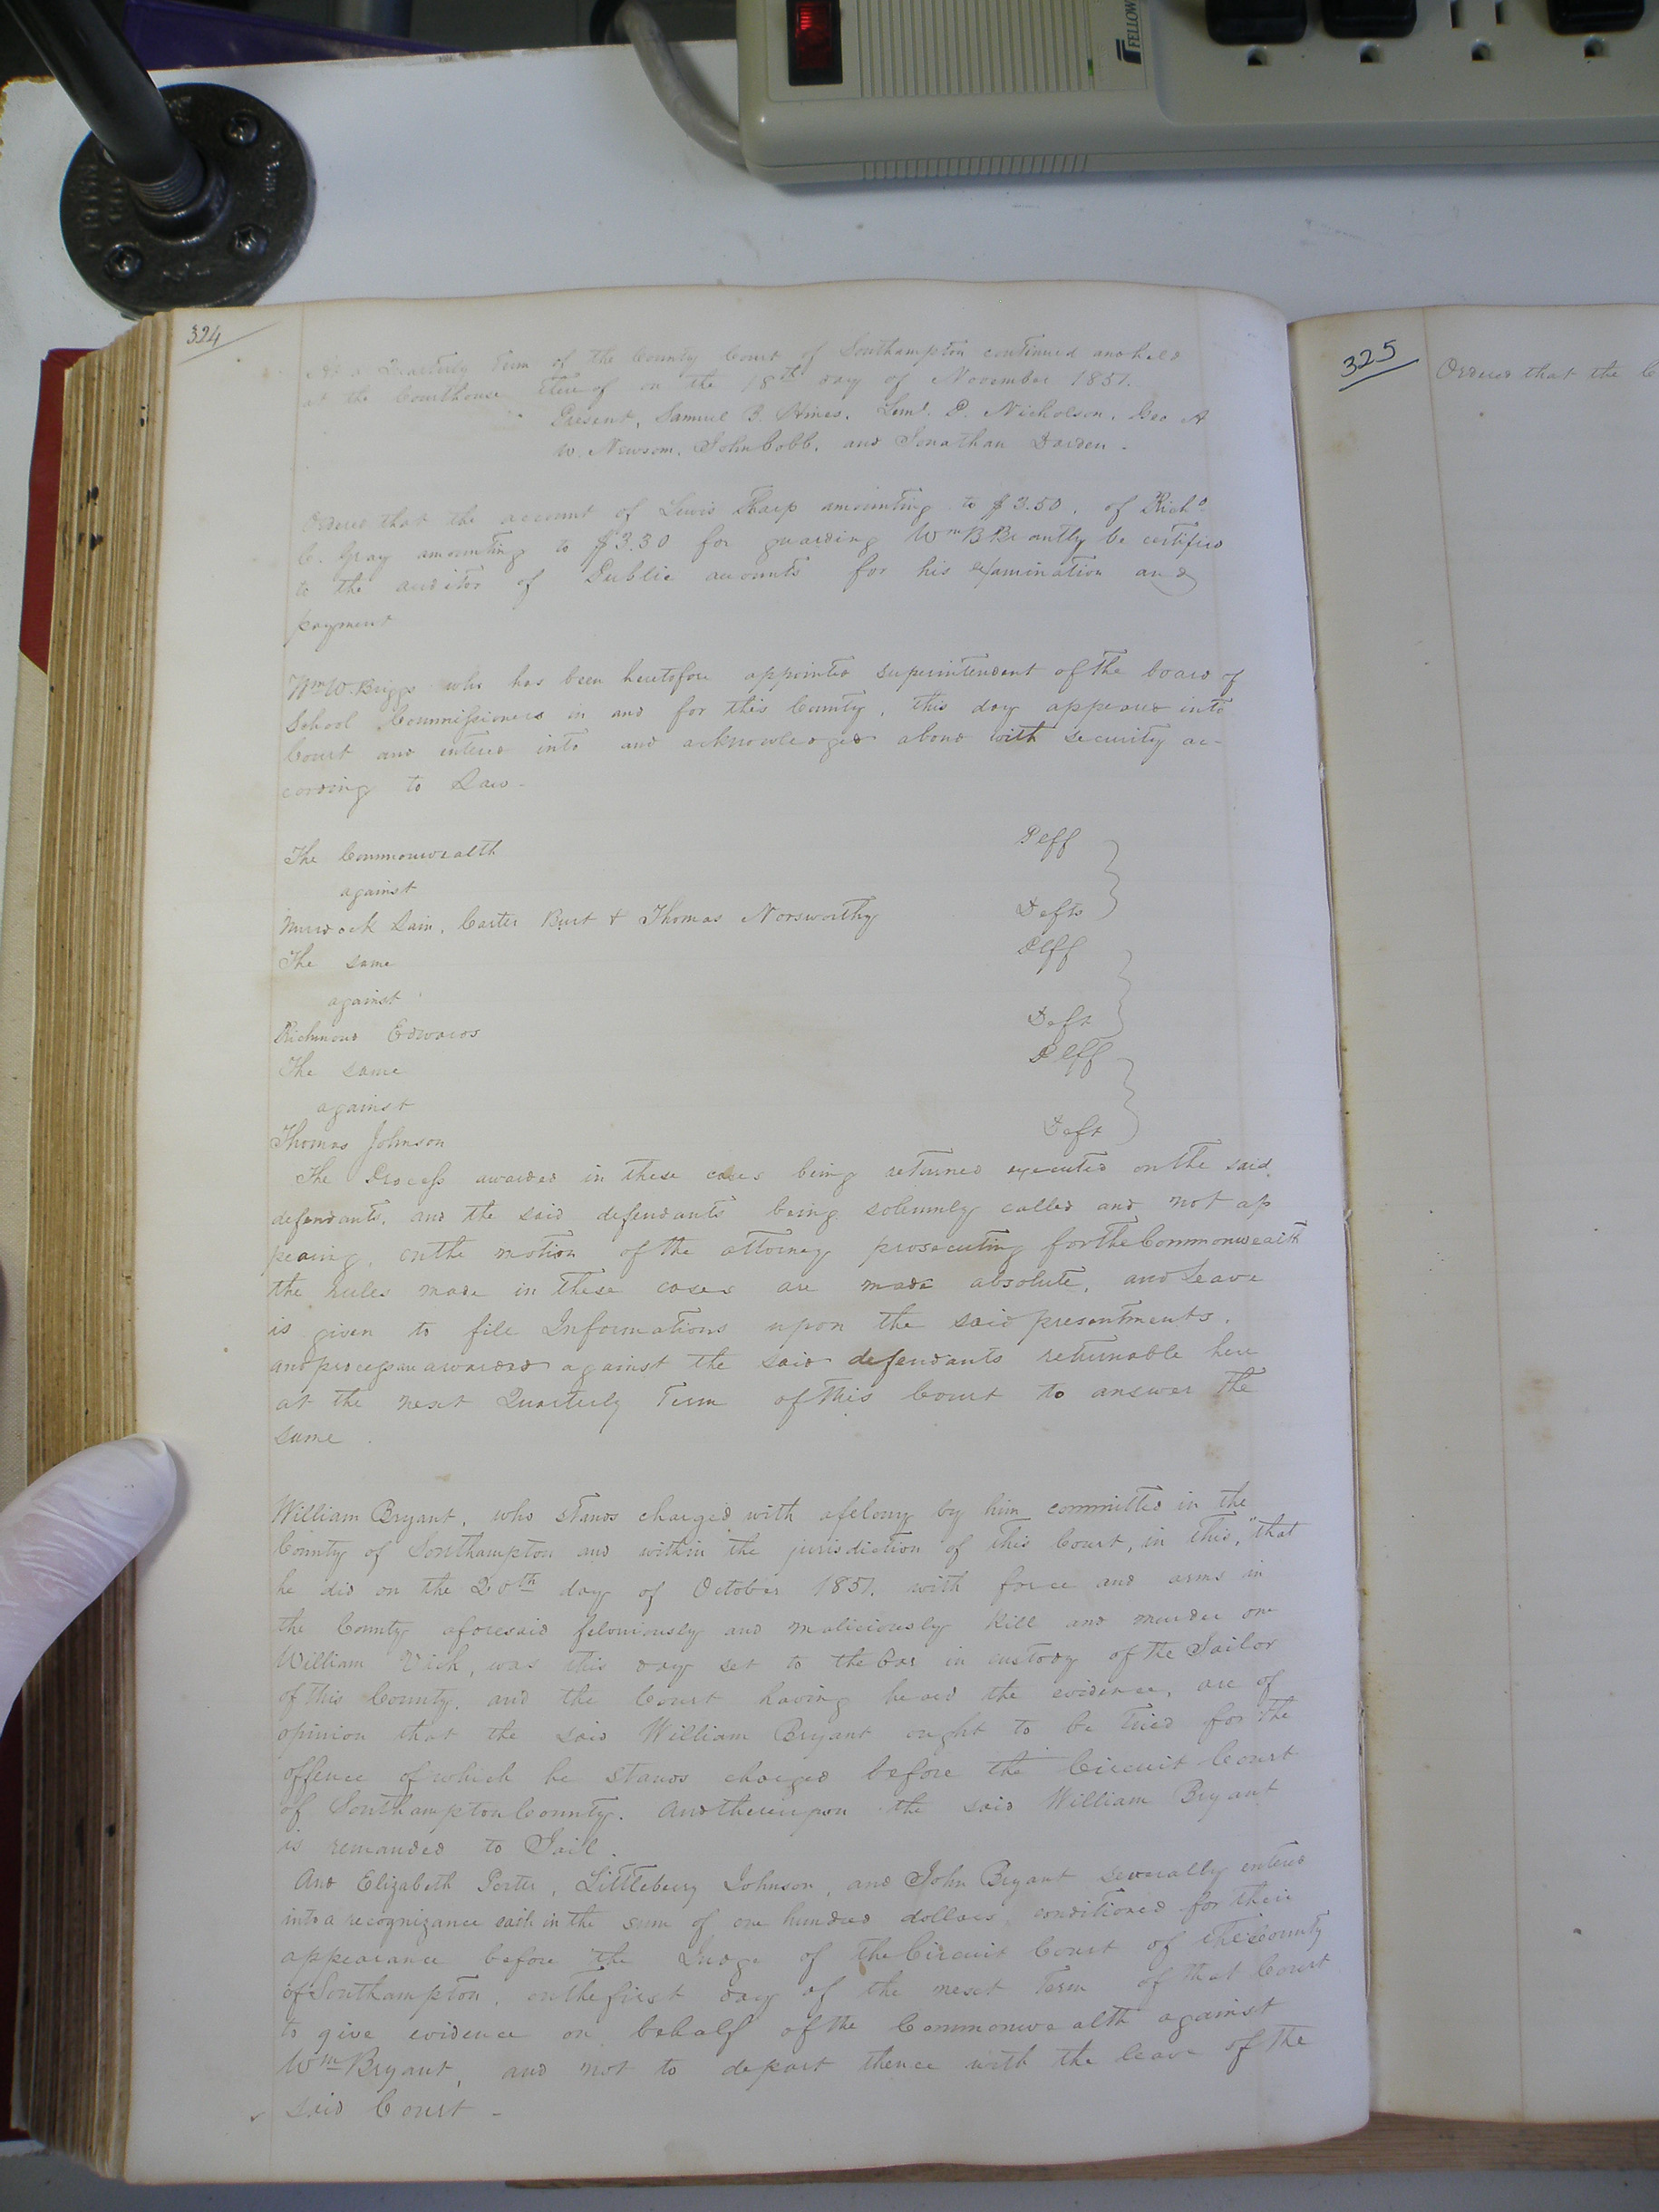 324
At a Quarterly Term of the County Court of Southampton continued and held
at the Courthouse thereof on the 18th day of November 1851.
Present, Samuel B. Hines, Leml. P. Nicholson, Geo A
W. Newsom, John Cobb, and Jonathan Darden.
Ordered that the account of Lewis Tharp amounting to $3.50, of Richd
C. Gray amounting to $3.30 for guarding Wm B Brantly be certified
to the auditor of Public accounts for his examination and
payment
Wm W. Briggs who has been heretofore appointed superintendent of the board of
School Commissioners in and for this County, this day appeared into
Court and entered into and acknowledged a bond with security ac-
cording to Law.
The Commonwealth Plff
against
Murdock Lain, Carter Burt & Thomas Norsworthy Defts
The same Plff
against
Richmond Edwards Deft
The same Plff
against
Thomas Johnson Deft
The Process awarded in these cases being returned executed on the said
defendants, and the said defendants being solemnly called and not ap
pearing, on the motion of the attorney prosecuting for the Commonwealth
the rules made in these cases are made absolute, and leave
is given to file Informations upon the said presentments,
and process awarded against the said defendants returnable here
at the next Quarterly Term of this Court to answer the
same.
William Bryant, who stands charged with a felony by him committed in the
County of Southampton and within the jurisdiction of this Court, in this, "that
he did on the 20th day of October 1851, with force and arms in
the County aforesaid feloniously and maliciously kill and murder one
William Vick, was this day set to the bar in custody of the Jailor
of this County, and the Court having heard the evidence, are of
opinion that the said William Bryant ought to be tried for the
offence of which he stands charged before the Circuit Court
of Southampton County. And thereupon the said William Bryant
is remanded to Jail.
And Elizabeth Porter, Littleberry Johnson, and John Bryant severally entered
into a recognizance each in the sum of one hundred dollars, conditioned for their
appearance before the Judge of the Circuit Court of the County
of Southampton, on the first day of the next Term of that Court
to give evidence on behalf of the Commonwealth against
Wm Bryant, and not to depart thence with the leave of the
said Court -
325
Ordered that the
FELLOW